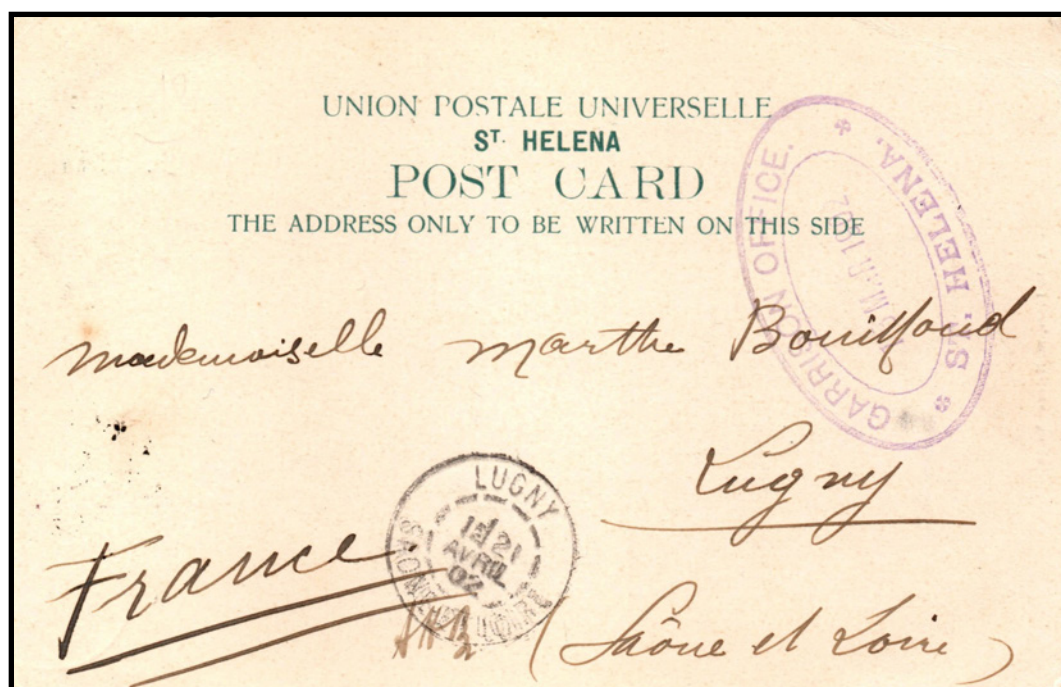 UNION POSTALE UNIVERSELLE
ST. HELENA
POST CARD
THE ADDRESS ONLY TO BE WRITTEN ON THIS SIDE
GARRISON OFFICE.
ST HELENA.
MAR 1902
Mademoiselle Marthe Bouilloud
Lugny
France
(Saône et Loire)
LUGNY
21
AVRIL
02